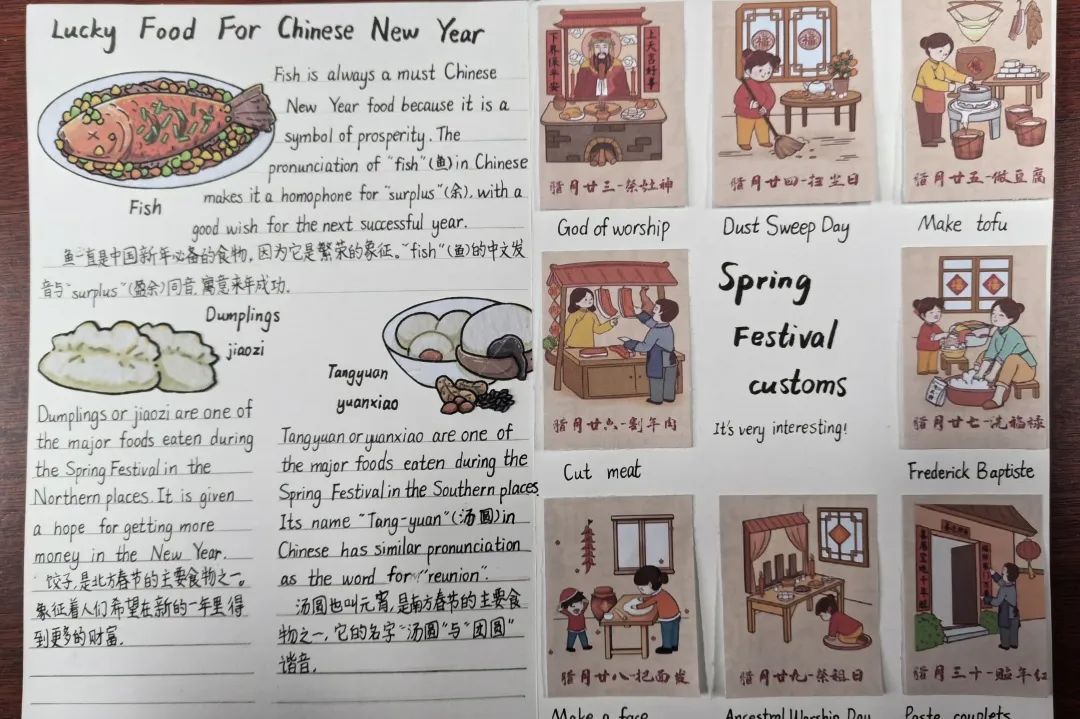 Lucky Food For Chinese New Year
Fish is always a must Chinese
New Year food because it is a
symbol of prosperity. The
pronunciation of "fish"(鱼) in Chinese
makes it a homophone for "surplus"(余), with a
good wish for the next successful year.
Fish
鱼一直是中国新年必备的食物,因为它是繁荣的象征。"fish"(鱼)的中文发
音与"surplus"(盈余)同音,寓意来年成功.
Dumplings
jiaozi
Dumplings or jiaozi are one of
the major foods eaten during
the Spring Festival in the
Northern places. It is given
a hope for getting more
money in the New Year.
饺子,是北方春节的主要食物之一。
象征着人们希望在新的一年里得
到更多的财富.
Tangyuan
yuanxiao
Tangyuan or yuanxiao are one of
the major foods eaten during the
Spring Festival in the Southern places.
Its name "Tang-yuan"(汤圆) in
Chinese has similar pronunciation
as the word for "reunion".
汤圆也叫元宵,是南方春节的主要食
物之一,它的名字"汤圆"与"团圆"
谐音.
上天言好事
下界保平安
腊月廿三-祭灶神
God of worship
福 福
腊月廿四-扫尘日
Dust Sweep Day
腊月廿五-做豆腐
Make tofu
腊月廿六-割年肉
Cut meat
Spring
Festival
customs
It's very interesting!
腊月廿七-洗福禄
Frederick Baptiste
腊月廿八-把面发
Make a face
腊月廿九-祭祖日
Ancestral Worship Day
腊月三十-贴年红
Paste couplets